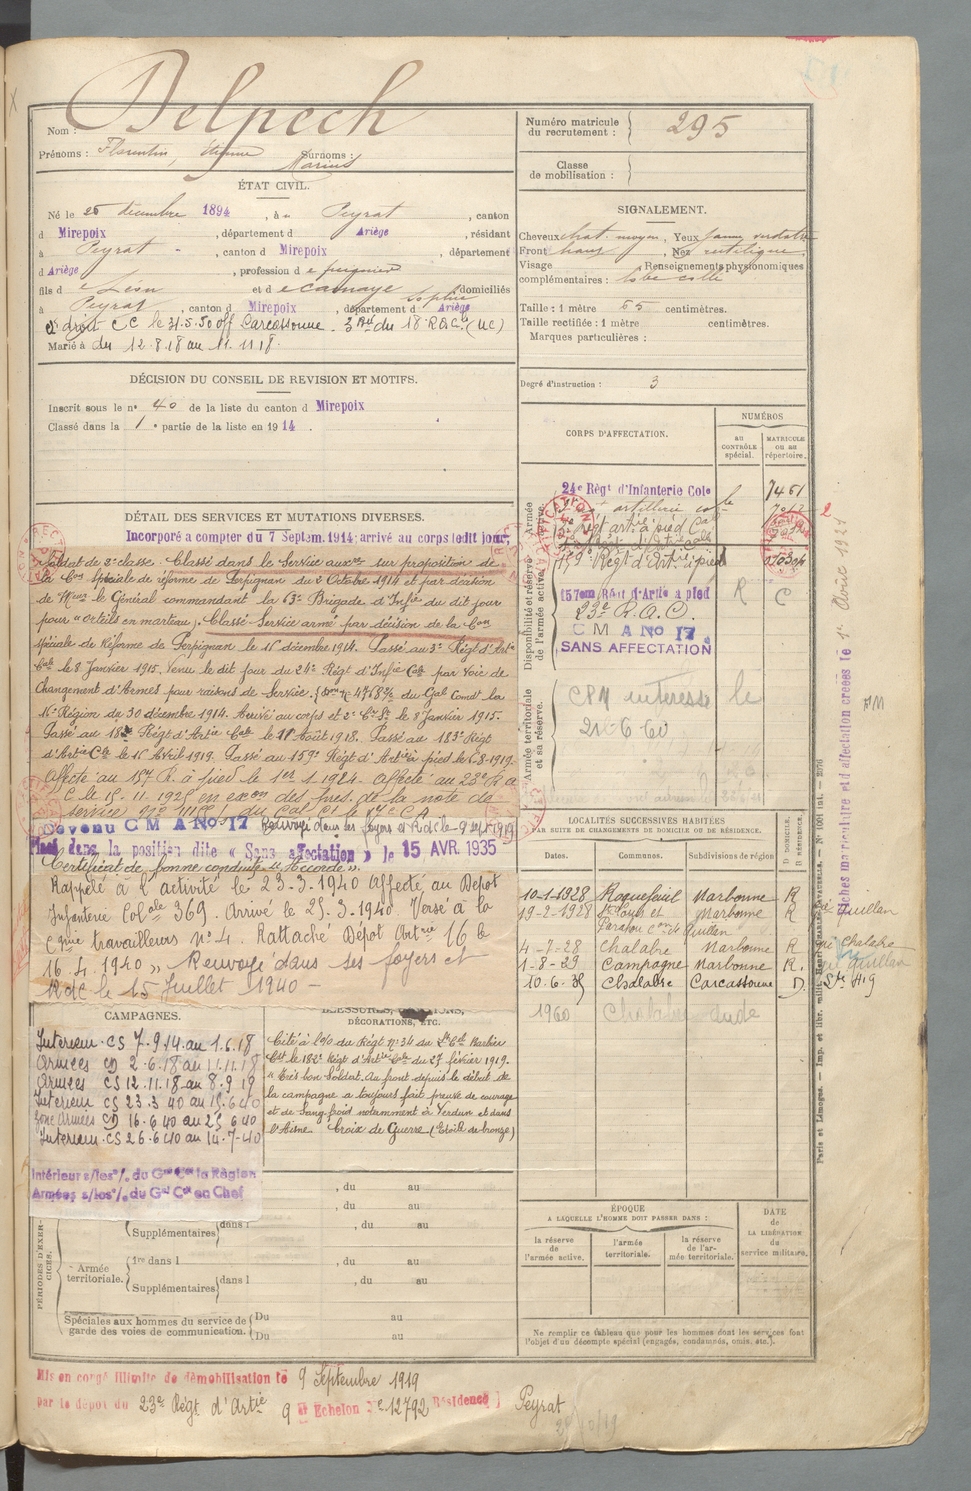 Nom : Delpech
Prénoms : Florentin, Etienne Surnoms : Marius
ÉTAT CIVIL.
Né le 25 décembre 1894, à Peyrat, canton
d Mirepoix, département d Ariège, résidant
à Peyrat, canton d Mirepoix, département
d Ariège, profession d
fils d e Léon et d e Sophie domiciliés
à Peyrat, canton d Mirepoix, département d Ariège
CC le 31.5.50 off Carcassonne - 3 du 18 RAC (UC)
Marié à du 12.8.18 au 11.11.18.
DÉCISION DU CONSEIL DE REVISION ET MOTIFS.
Inscrit sous le n° 40 de la liste du canton d Mirepoix
Classé dans la 1e partie de la liste en 1914.
DÉTAIL DES SERVICES ET MUTATIONS DIVERSES.
Incorporé a compter du 7 Septem. 1914; arrivé au corps ledit jour,
Soldat de 2e classe. Classé dans le Service auxre sur proposition de
la Con Spéciale de réforme de Perpignan du 2 Octobre 1914 et par décision
de Meur le Général commandant la 63e Brigade d'Infie du dit jour
pour "orteils en marteau". Classé Service armé par décision de la Con
spéciale de Réforme de Perpignan le 15 décembre 1914. Passé au 3e Régt d'Artie
Cale le 8 Janvier 1915. Venu le dit jour du 24e Régt d'Infie Cale par voie de
Changement d'Armes pour raisons de Service. du Gal Comdt la
16e Région du 30 décembre 1914. Arrivé au corps et 2e Cr St le 8 Janvier 1915.
Passé au 182e Régt d'Artie Cale le 1er Août 1918. Passé au 183e Régt
d'Artie Cle le 15 Avril 1919. Passé au 159e Régt d'Artie à pied le 6-8-1919.
Affecté au 157 R. à pied le 1er 1.1924. Affecté au 23e R.A
C le 15.11.1925 en exon des pres. de la note de
service
Devenu C M A No 17 Renvoyé dans ses foyers et RdC le 9 sept 1919
Placé dans la position dite « Sans affectation » le 15 AVR. 1935
Certificat de bonne conduite "Accordé".
Rappelé à l'activité le 23-3-1940 Affecté au Dépot
Infanterie Colale 369. Arrivé le 25.3.1940 Versé à la
Cgnie travailleurs No 4. Rattaché Dépot Artrie 16 le
16.4.1940 » Renvoyé dans ses foyers et
RdC le 15 Juillet 1940 -
CAMPAGNES.
Interieur . CS 7-9.14 au 1.6.18
Armées CD 2-6.18 au 11.11.18
Armées CS 12.11.18 au 8.9.19
Interieur CS 23.3 40 au 15.6 40
Zone Armées CD 16.6 40 au 25 6 40
Interieur. CS 26.6 40 au 14.7-40
Intérieur s/les% du Gal Ct la Région
Armées s/les% du Gal Ct en Chef
BLESSURES, CITATIONS,
DÉCORATIONS, ETC.
Cité à l'o/o du Régt No 34 du Lt Cel Barbier
Ct le 182e Régt d'Artie Cale du 27 février 1919.
"Très bon Soldat. Au front depuis le début de
la campagne a toujours fait preuve de courage
et de Sang-froid notamment à Verdun et dans
l'Aisne. Croix de Guerre (Etoile de bronze)
, du au
, du au
Supplémentaires dans l , du au
PÉRIODES D'EXERCICES.
Armée territoriale.
1re dans l , du au
Supplémentaires dans l , du au
Spéciales aux hommes du service de garde des voies de communication.
Du au
Du au
Mis en congé illimité de démobilisation le 9 Septembre 1919
par le dépôt du 23e Régt d'Artie 9 Echelon No 12792 Résidence Peyrat
Numéro matricule du recrutement : 295
Classe de mobilisation :
SIGNALEMENT.
Cheveux chat. moyen, Yeux jaune verdatre
Front haut, Nez rectiligne
Visage Renseignements physionomiques
complémentaires : lobe collé
Taille : 1 mètre 65 centimètres.
Taille rectifiée : 1 mètre centimètres.
Marques particulières :
Degré d'instruction : 3
CORPS D'AFFECTATION.
NUMÉROS
au CONTRÔLE spécial.
MATRICULE ou au répertoire.
Armée active.
24e Régt d'Infanterie Cole 7451
Disponibilité et réserve de l'armée active.
159e Régt d'Art. à pied
157eme Régt d'Artie à pied R C
23e R.A.C.
C M A No 17
SANS AFFECTATION
Armée territoriale et sa réserve.
le
21-6-60
LOCALITÉS SUCCESSIVES HABITÉES
PAR SUITE DE CHANGEMENTS DE DOMICILE OU DE RÉSIDENCE.
Dates. Communes. Subdivisions de région D. DOMICILE, R. RÉSIDENCE.
10-1-1928 Roquefeuil Narbonne R
19-2-1928 St Louis et Parahou Con de Quillan Narbonne R Quillan
4-7-28 Chalabre Narbonne R Chalabre
1-8-29 Campagne Narbonne R. Quillan
10.6.35 Chalabre Carcassonne D.
1960 Chalabre Aude
ÉPOQUE
A LAQUELLE L'HOMME DOIT PASSER DANS :
la réserve de l'armée active.
l'armée territoriale.
la réserve de l'armée territoriale.
DATE DE LA LIBÉRATION du service militaire.
Ne remplir ce tableau que pour les hommes dont les services font
l'objet d'un décompte spécial (engagés, condamnés, omis, etc.).
Fiches matriculaire et d'affectation créées le 1er Août 1927